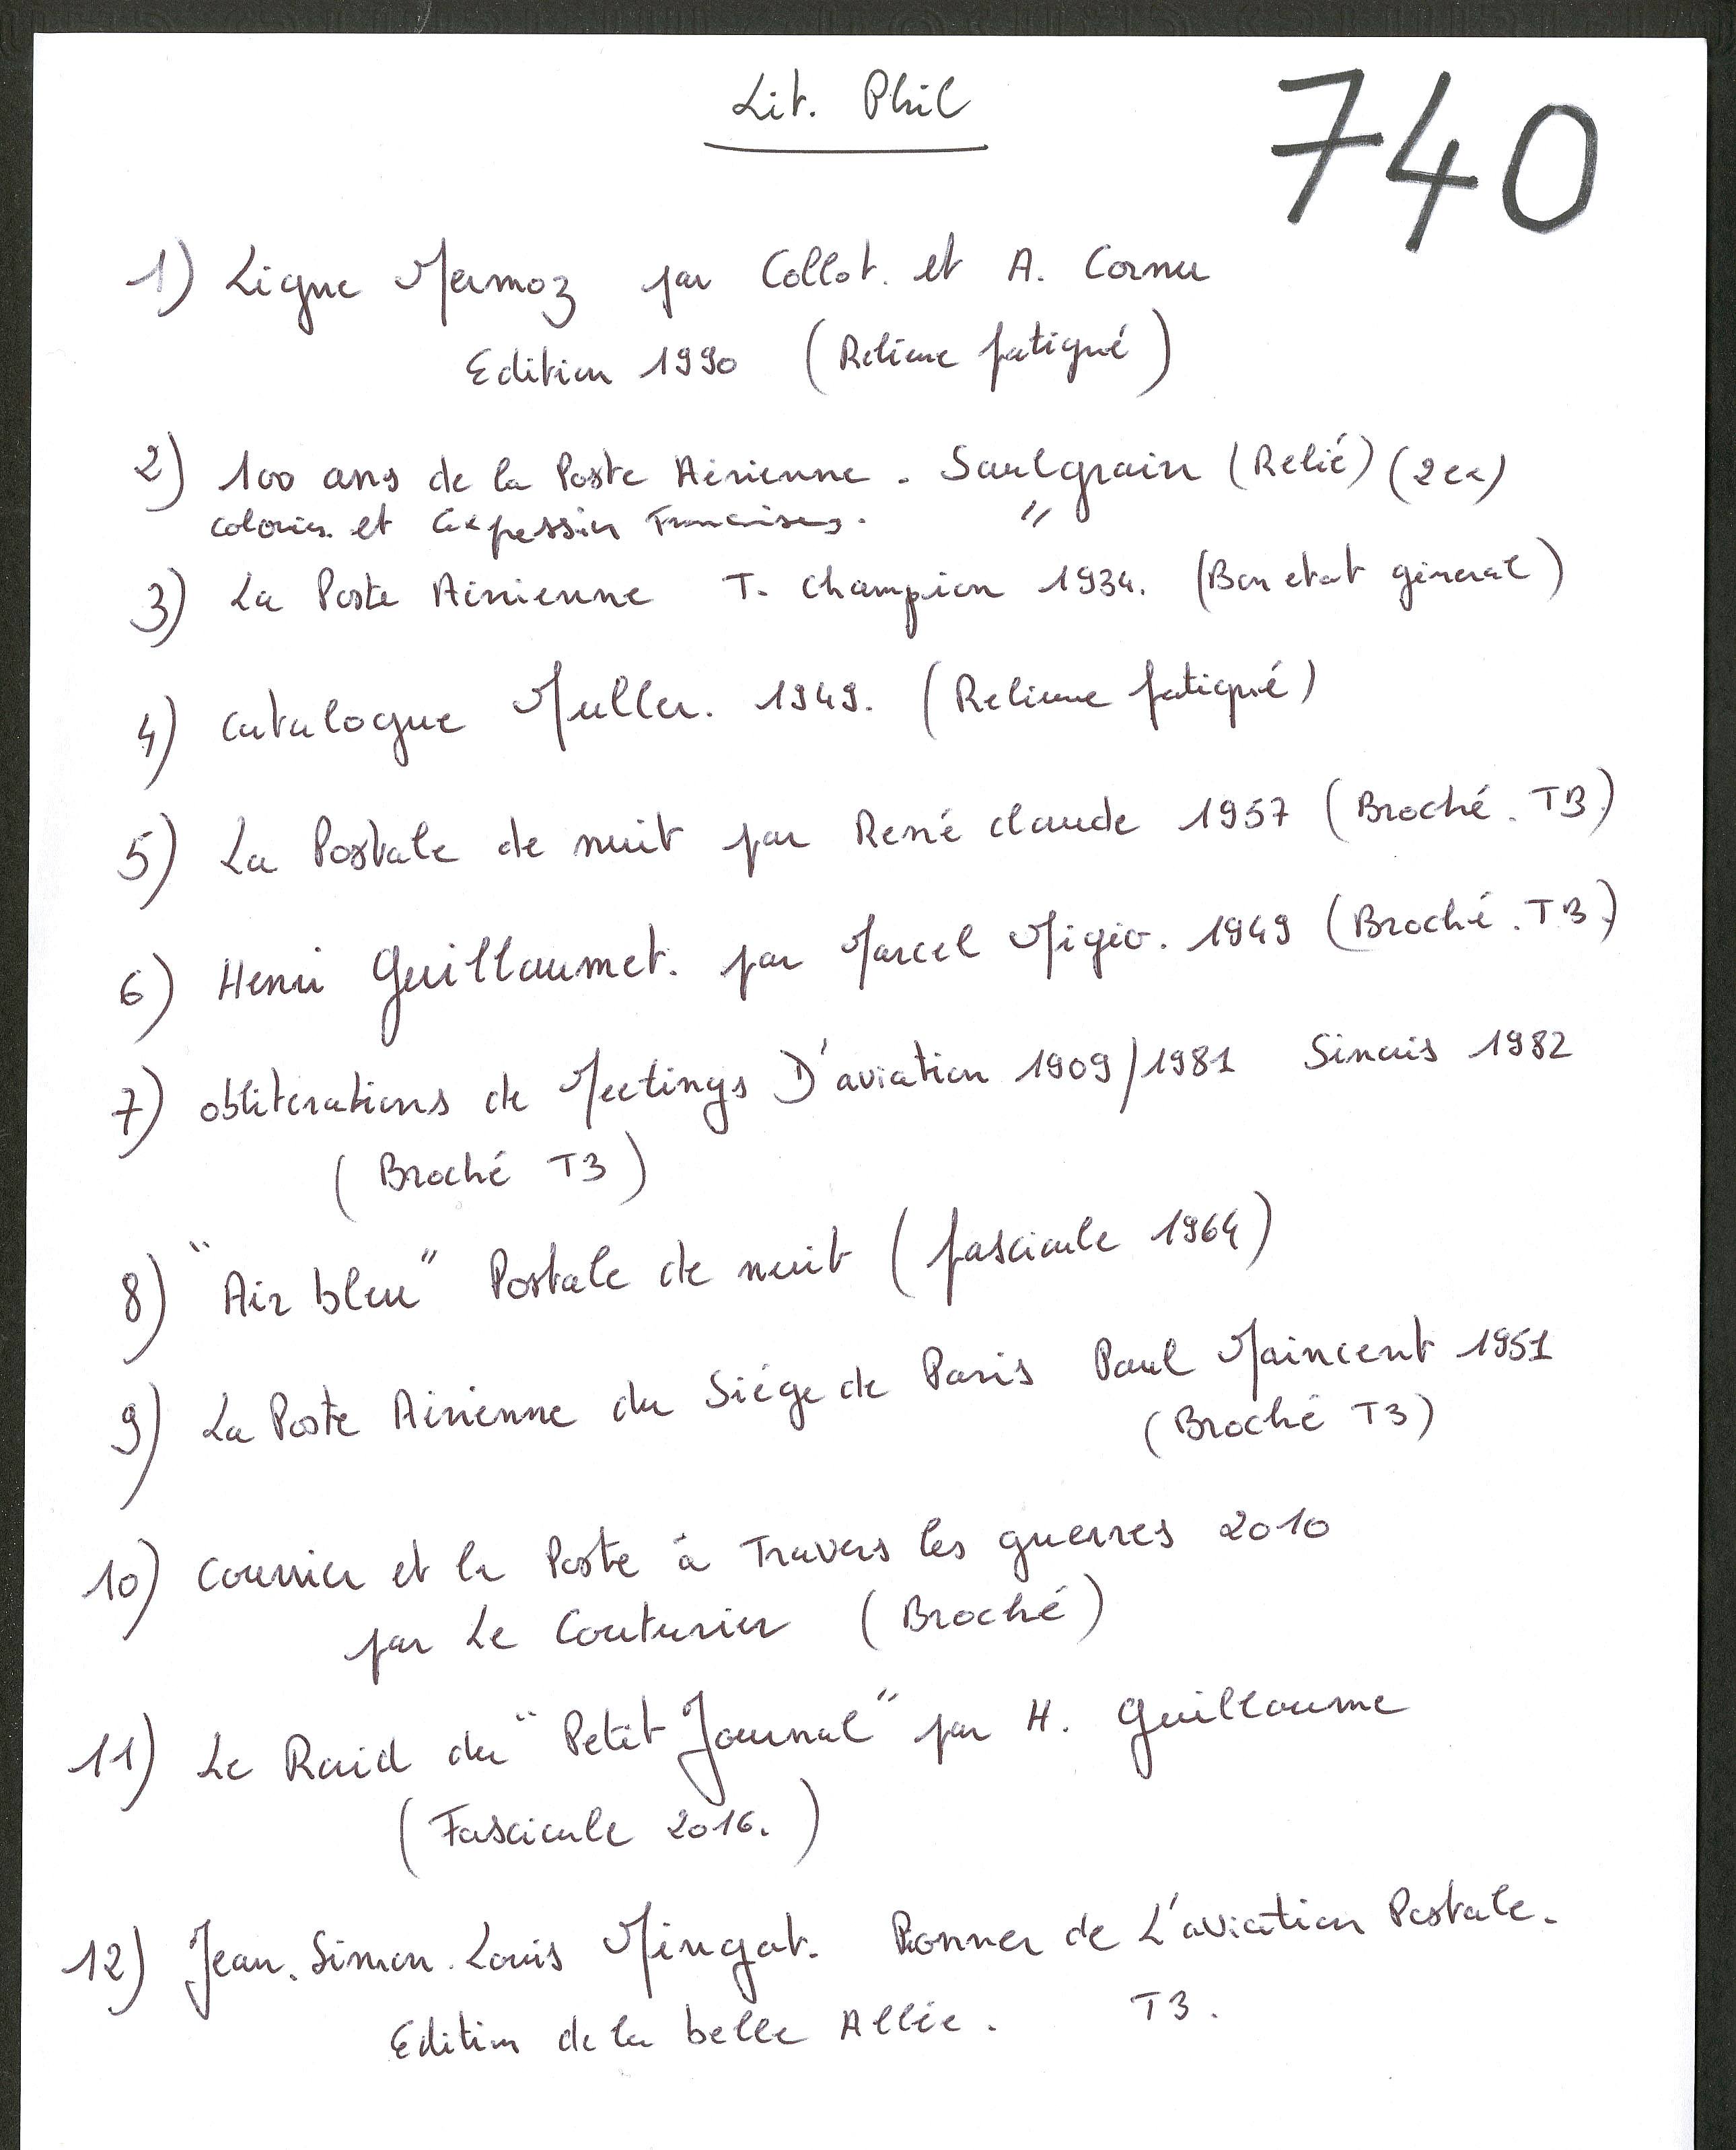 Lit. Phil
740
1) Ligne Mermoz par Collot. et A. Cornu
Edition 1990 (Relieure fatigué)
2) 100 ans de la Poste Aérienne. Saulgrain (Relié) (2 ex)
colonies. et Expession Francaises. "
3) La Poste Aérienne T. Champion 1934. (Bon etat géneral)
4) catalogue Muller. 1949. (Relieure fatigué)
5) La Postale de nuit par René claude 1957 (Broché. TB)
6) Henri Guillaumet. par Marcel Migéo. 1949 (Broché. TB.)
7) oblitérations de Meetings D'aviation 1909/1981 Sinais 1982
(Broché TB)
8) "Air bleu" Postale de nuit (fascicule 1964)
9) La Poste Aérienne du Siége de Paris Paul Maincent 1951
(Broché TB)
10) Courrier et la Poste à Travers les guerres 2010
par Le Couturier (Broché)
11) Le Raid du "Petit Journal" par H. Guillaume
(Fascicule 2016.)
12) Jean. Simon. Louis Mingat. Pionner de L'aviation Postale.
Edition de la belle Allée. TB.